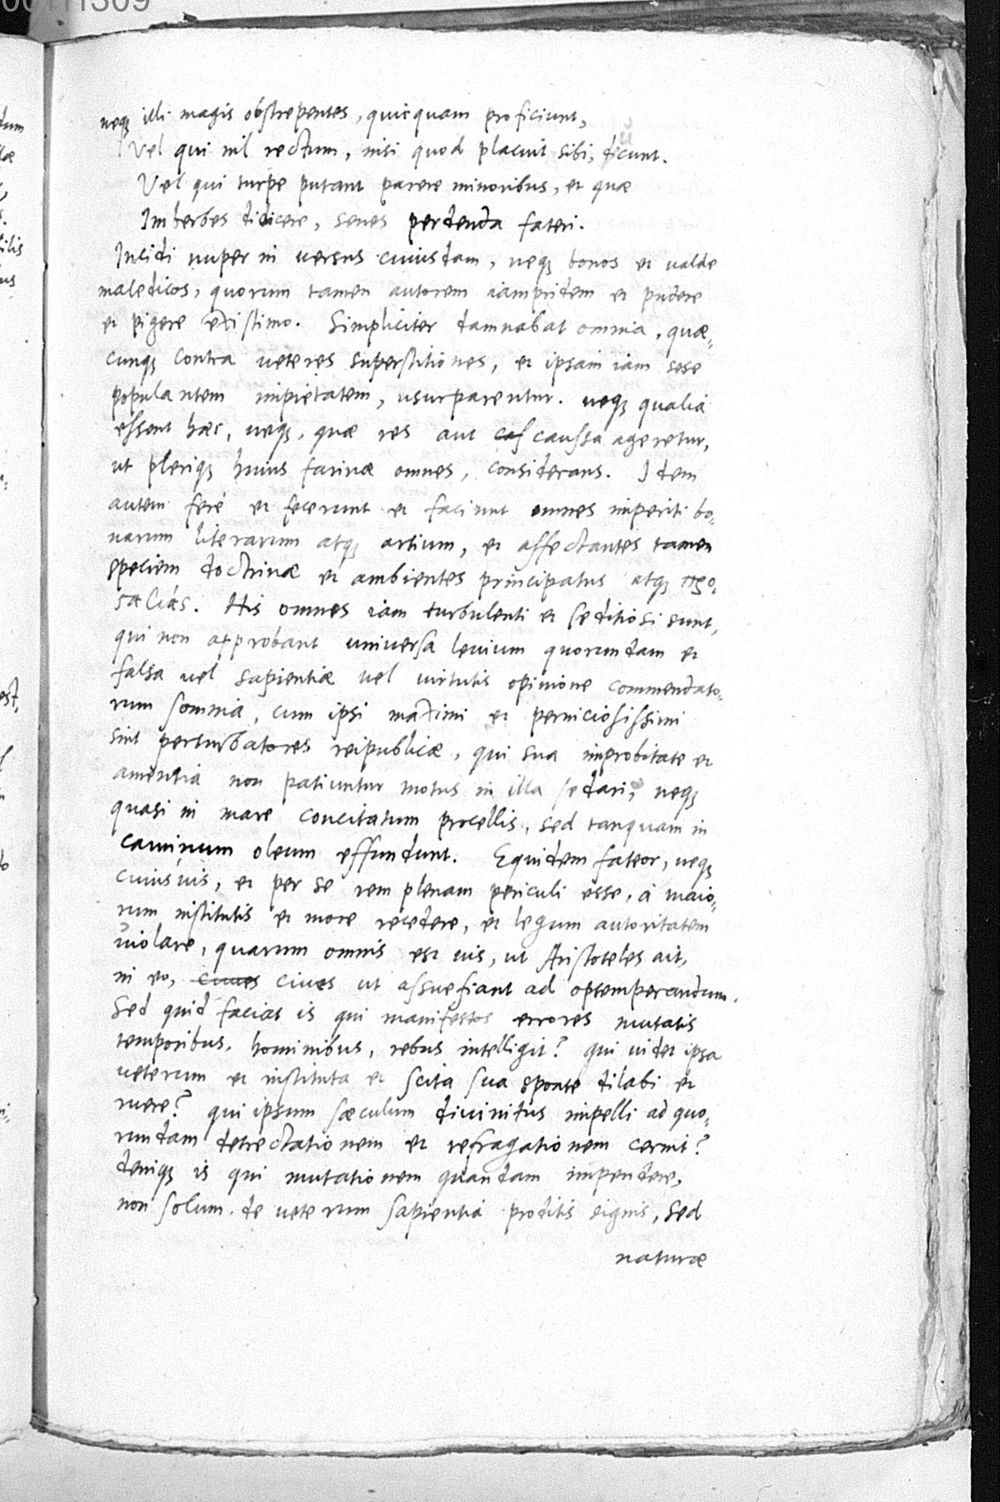 neq; illi magis obstrepentes, quicquam proficiunt,
Vel qui nil rectum, nisi quod placuit sibi, ducunt.
Vel qui turpe putant parere minoribus, et quæ
Imberbes didicere, senes perdenda fateri.
Incidi nuper in versus cuiusdam, neq; bonos et valde
maledicos, quorum tamen autorem iampridem et pudere
et pigere existimo. Simpliciter damnabat omnia, quæ-
cunq; contra veteres superstitiones, et ipsam iam sese
populantem impietatem, usurparentur. neq; qualia
essent hæc, neq;, quæ res aut caussa ageretur,
ut pleriq; huius farinæ omnes, considerans. Idem
autem ferè et fecerunt et faciunt omnes imperiti bo-
narum literarum atq; artium, et affectantes tamen
speciem doctrinæ et ambientes principatus atq; προ-
σασίας. His omnes iam turbulenti et seditiosi sunt,
qui non approbant universa levium quorundam et
falsa vel sapientiæ vel virtutis opinione commendato-
rum somnia, cum ipsi maximi et perniciosissimi
sint perturbatores reipublicæ, qui sua improbitate et
amentia non patiuntur motus in illa sedari, neq;
quasi in mare concitatum procellis, sed tanquam in
caminum oleum effundunt. Equidem fateor, neq;
cuiusvis, et per se rem plenam periculi esse, à maio-
rum institutis et more recedere, et legum autoritatem
violare, quarum omnis est vis, ut Aristoteles ait,
in eo, cives cives ut assuefiant ad obtemperandum.
Sed quid faciat is qui manifestos errores mutatis
temporibus, hominibus, rebus intelligit? qui videt ipsa
veterum et instituta et scita sua sponte dilabi et
ruere? qui ipsum sæculum divinitus impelli ad quo-
rundam detrectationem et refragationem cernit?
deniq; is qui mutationem quandam impendere,
non solum de veterum sapientia proditis signis, sed
naturæ